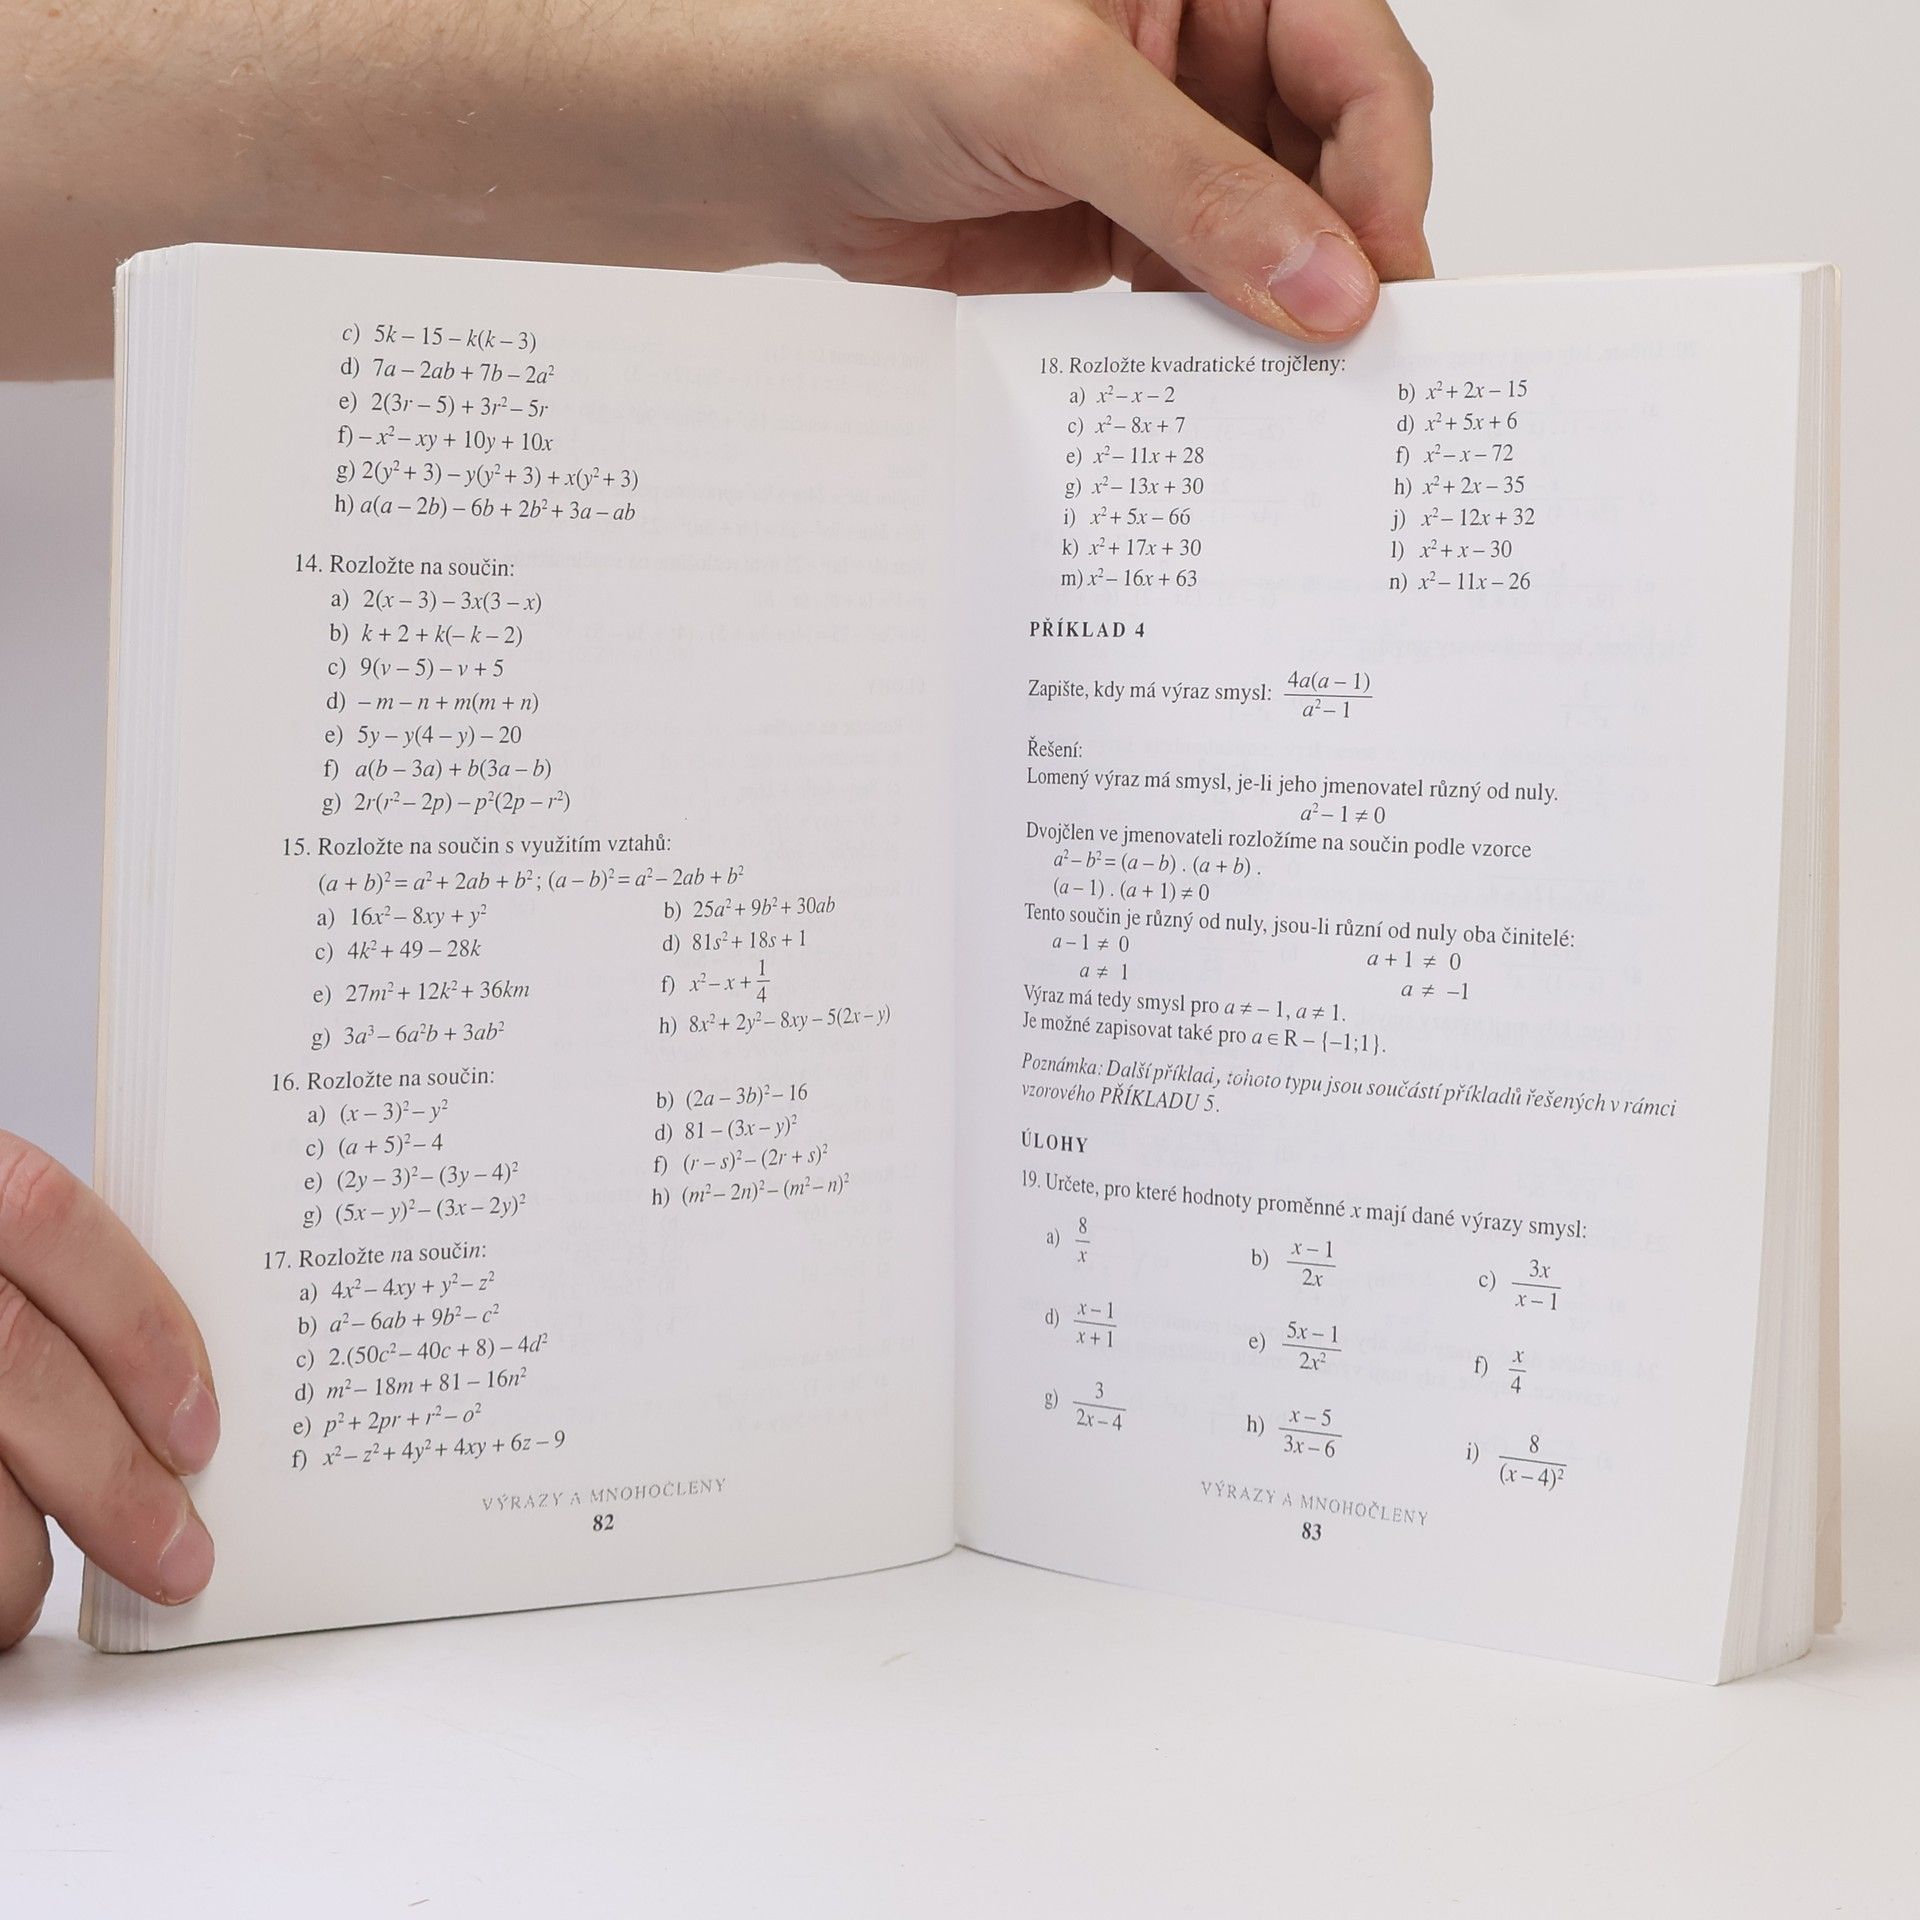 c) 5k – 15 – k(k – 3)
d) 7a – 2ab + 7b – 2a²
e) 2(3r – 5) + 3r² – 5r
f) – x² – xy + 10y + 10x
g) 2(y² + 3) – y(y² + 3) + x(y² + 3)
h) a(a – 2b) – 6b + 2b² + 3a – ab
14. Rozložte na součin:
a) 2(x – 3) – 3x(3 – x)
b) k + 2 + k(– k – 2)
c) 9(v – 5) – v + 5
d) – m – n + m(m + n)
e) 5y – y(4 – y) – 20
f) a(b – 3a) + b(3a – b)
g) 2r(r² – 2p) – p²(2p – r²)
15. Rozložte na součin s využitím vztahů:
(a + b)² = a² + 2ab + b² ; (a – b)² = a² – 2ab + b²
a) 16x² – 8xy + y² b) 25a² + 9b² + 30ab
c) 4k² + 49 – 28k d) 81s² + 18s + 1
e) 27m² + 12k² + 36km f) x² – x + 1/4
g) 3a³ – 6a²b + 3ab² h) 8x² + 2y² – 8xy – 5(2x – y)
16. Rozložte na součin:
a) (x – 3)² – y² b) (2a – 3b)² – 16
c) (a + 5)² – 4 d) 81 – (3x – y)²
e) (2y – 3)² – (3y – 4)² f) (r – s)² – (2r + s)²
g) (5x – y)² – (3x – 2y)² h) (m² – 2n)² – (m² – n)²
17. Rozložte na součin:
a) 4x² – 4xy + y² – z²
b) a² – 6ab + 9b² – c²
c) 2.(50c² – 40c + 8) – 4d²
d) m² – 18m + 81 – 16n²
e) p² + 2pr + r² – o²
f) x² – z² + 4y² + 4xy + 6z – 9
VÝRAZY A MNOHOČLENY
82
18. Rozložte kvadratické trojčleny:
a) x² – x – 2 b) x² + 2x – 15
c) x² – 8x + 7 d) x² + 5x + 6
e) x² – 11x + 28 f) x² – x – 72
g) x² – 13x + 30 h) x² + 2x – 35
i) x² + 5x – 66 j) x² – 12x + 32
k) x² + 17x + 30 l) x² + x – 30
m) x² – 16x + 63 n) x² – 11x – 26
PŘÍKLAD 4
Zapište, kdy má výraz smysl: 4a(a – 1)/(a² – 1)
Řešení:
Lomený výraz má smysl, je-li jeho jmenovatel různý od nuly.
a² – 1 ≠ 0
Dvojčlen ve jmenovateli rozložíme na součin podle vzorce
a² – b² = (a – b) . (a + b) .
(a – 1) . (a + 1) ≠ 0
Tento součin je různý od nuly, jsou-li různí od nuly oba činitelé:
a – 1 ≠ 0 a + 1 ≠ 0
a ≠ 1 a ≠ –1
Výraz má tedy smysl pro a ≠ – 1, a ≠ 1.
Je možné zapisovat také pro a ∈ R – {–1;1}.
Poznámka: Další příklad, tohoto typu jsou součástí příkladů řešených v rámci
vzorového PŘÍKLADU 5.
ÚLOHY
19. Určete, pro které hodnoty proměnné x mají dané výrazy smysl:
a) 8/x b) (x – 1)/2x c) 3x/(x – 1)
d) (x – 1)/(x + 1) e) (5x – 1)/2x² f) x/4
g) 3/(2x – 4) h) (x – 5)/(3x – 6) i) 8/(x – 4)²
VÝRAZY A MNOHOČLENY
83